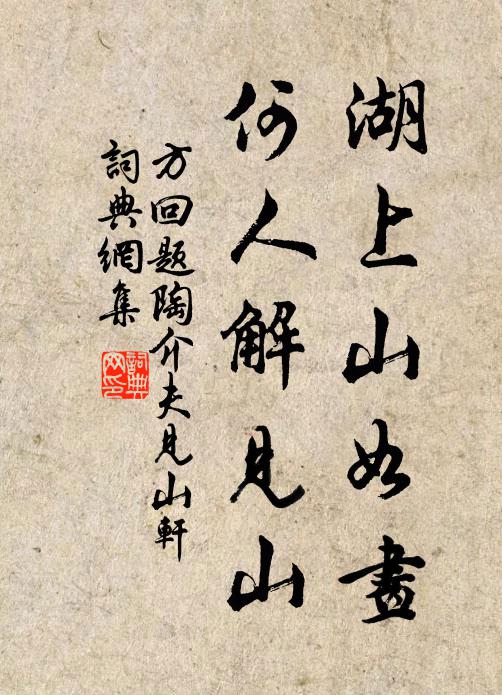 湖上山如畫
何人解見山
方回題陶介夫見山軒
詞典網集
詞典
网印